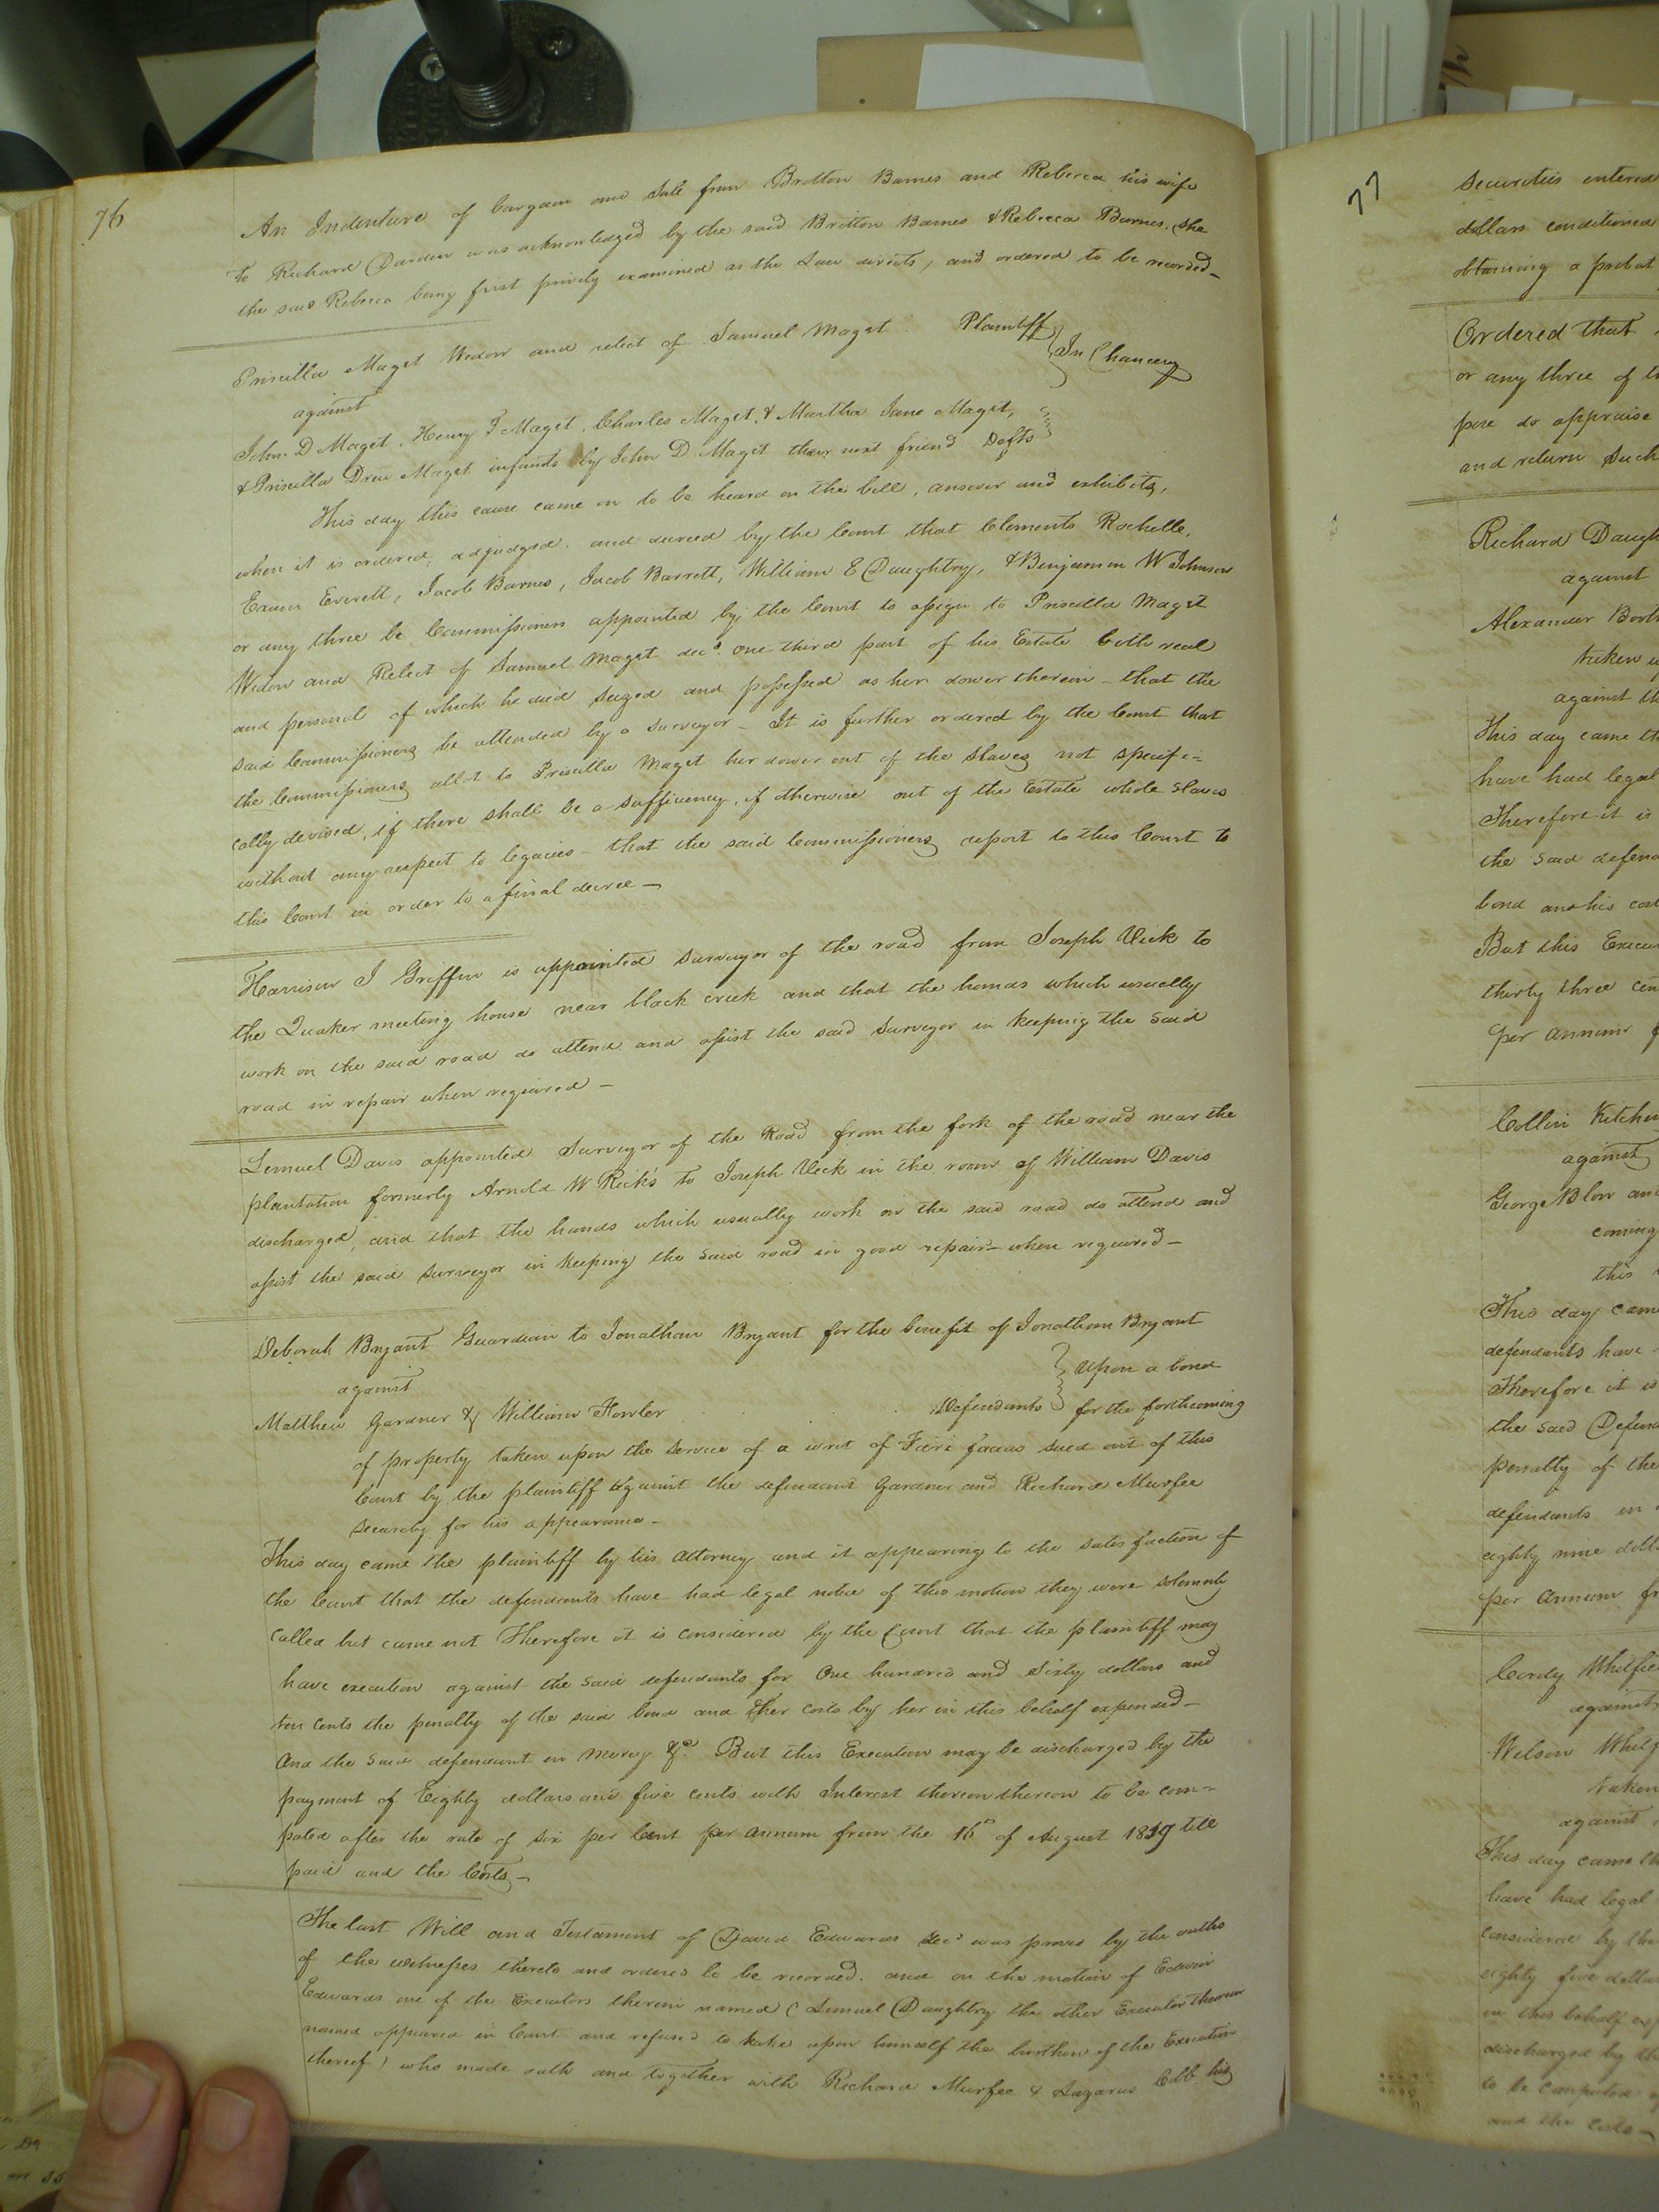 76
An Indenture of bargain and Sale from Britton Barnes and Rebecca his wife
to Richard Darden was acknowledged by the said Britton Barnes & Rebecca Barnes. She
the said Rebecca being first privily examined as the Law directs, and ordered to be recorded—
Priscilla Maget Widow and relict of Samuel Maget Plaintiff
In Chancery
against
John D Maget, Henry T Maget, Charles Maget, & Martha Jane Maget,
& Priscilla Drew Maget infants by John D Maget their next friend Defts
This day this cause came on to be heard on the bill, answer and exhibits,
when it is ordered, adjudged, and decreed by the Court that Clements Rochelle,
Exum Everett, Jacob Barnes, Jacob Barrett, William E Daughtry, & Benjamin W Johnson
or any three be Commissioners appointed by the Court to assign to Priscilla Maget
Widow and Relict of Samuel Maget decd. one third part of his Estate both real
and personal of which he died Seized and possessed as her dower therein – that the
said Commissioners be attended by a Surveyor – It is further ordered by the Court that
the Commissioners allot to Priscilla Maget her dower out of the Slaves not specifi=
cally devised, if there shall be a sufficiency, if otherwise out of the Estate whole Slaves
without any respect to legacies – that the said Commissioners report to this Court to
this Court in order to a final decree –
Harrison J Griffin is appointed Surveyor of the road from Joseph Vick to
the Quaker meeting house near black creek and that the hands which usually
work on the said road do attend and assist the said Surveyor in keeping the said
road in repair when required –
Lemuel Davis appointed Surveyor of the Road from the fork of the road near the
plantation formerly Arnold W Rick's to Joseph Vick in the room of William Davis
discharged, and that the hands which usually work on the said road do attend and
assist the said Surveyor in keeping the said road in good repair when required –
Deborah Bryant Guardian to Jonathan Bryant for the benefit of Jonathan Bryant
against
Upon a bond
Matthew Gardner & William Fowler Defendants for the forthcoming
of property taken upon the service of a writ of Fieri facias sued out of this
Court by the plaintiff against the defendant Gardner and Richard Murfee
Security for his appearance –
This day came the plaintiff by his Attorney and it appearing to the satisfaction of
the Court that the defendants have had legal notice of this motion they were solemnly
called but came not Therefore it is considered by the Court that the plaintiff may
have execution against the said defendants for One hundred and Sixty dollars and
ten cents the penalty of the said bond and her costs by her in this behalf expended –
And the said defendant in Mercy &c. But this Execution may be discharged by the
payment of Eighty dollars and five cents with Interest thereon thereon to be com=
puted after the rate of six per Cent per annum from the 16th of August 1819 till
paid and the Costs –
The last Will and Testament of David Edwards decd was proved by the oaths
of the witnesses thereto and ordered to be recorded. and on the motion of Edwin
Edwards one of the Executors therein named (Lemuel Daughtry the other Executor therein
named appeared in Court and refused to take upon himself the burthen of the Execution
thereof) who made oath and together with Richard Murfee & Lazarus Cobb his
77
Securities entered
dollars conditioned
obtaining a probat
Ordered that
or any three of
pose do appraise
and return such
Richard Daugh
against
Alexander
taken
against
This day came
have had legal
Therefore it is
the said defend
bond and his cost
But this Execu
thirty three cen
per annum
Collin Kitchen
against
George Blow and
coming
this
This day came
defendants have
Therefore it is
the said Defend
penalty of the
defendants in
eighty nine doll
per Annum
Cordy Whitfie
against
Wilson Whitf
taken
against
This day came
have had legal
considered by the
eighty five dollar
in this behalf
discharged by the
to be computed
and the costs –